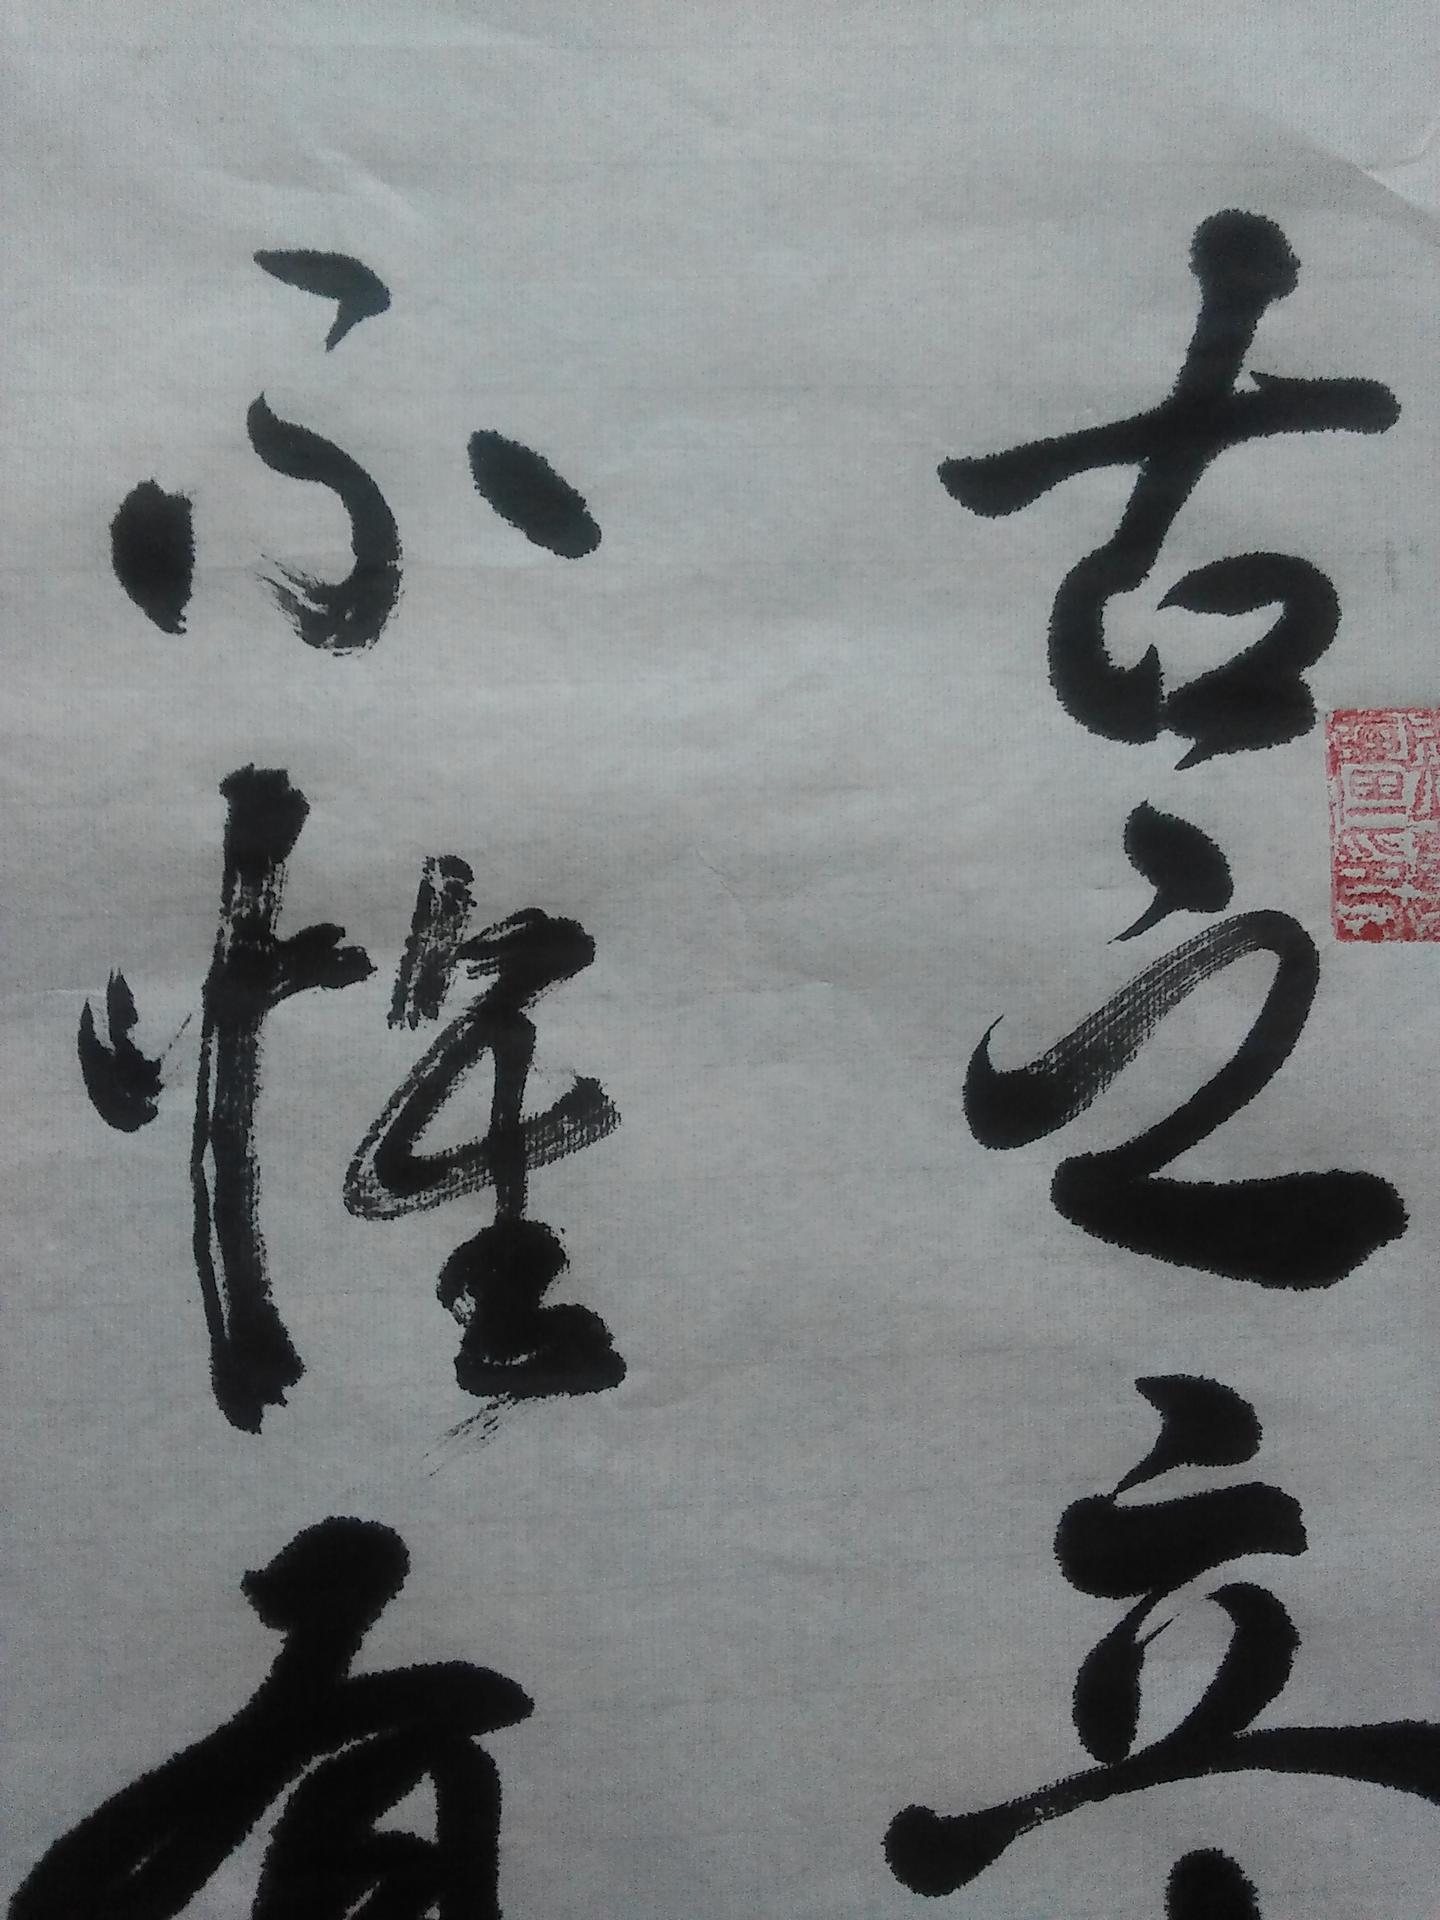 古之立
不惟有